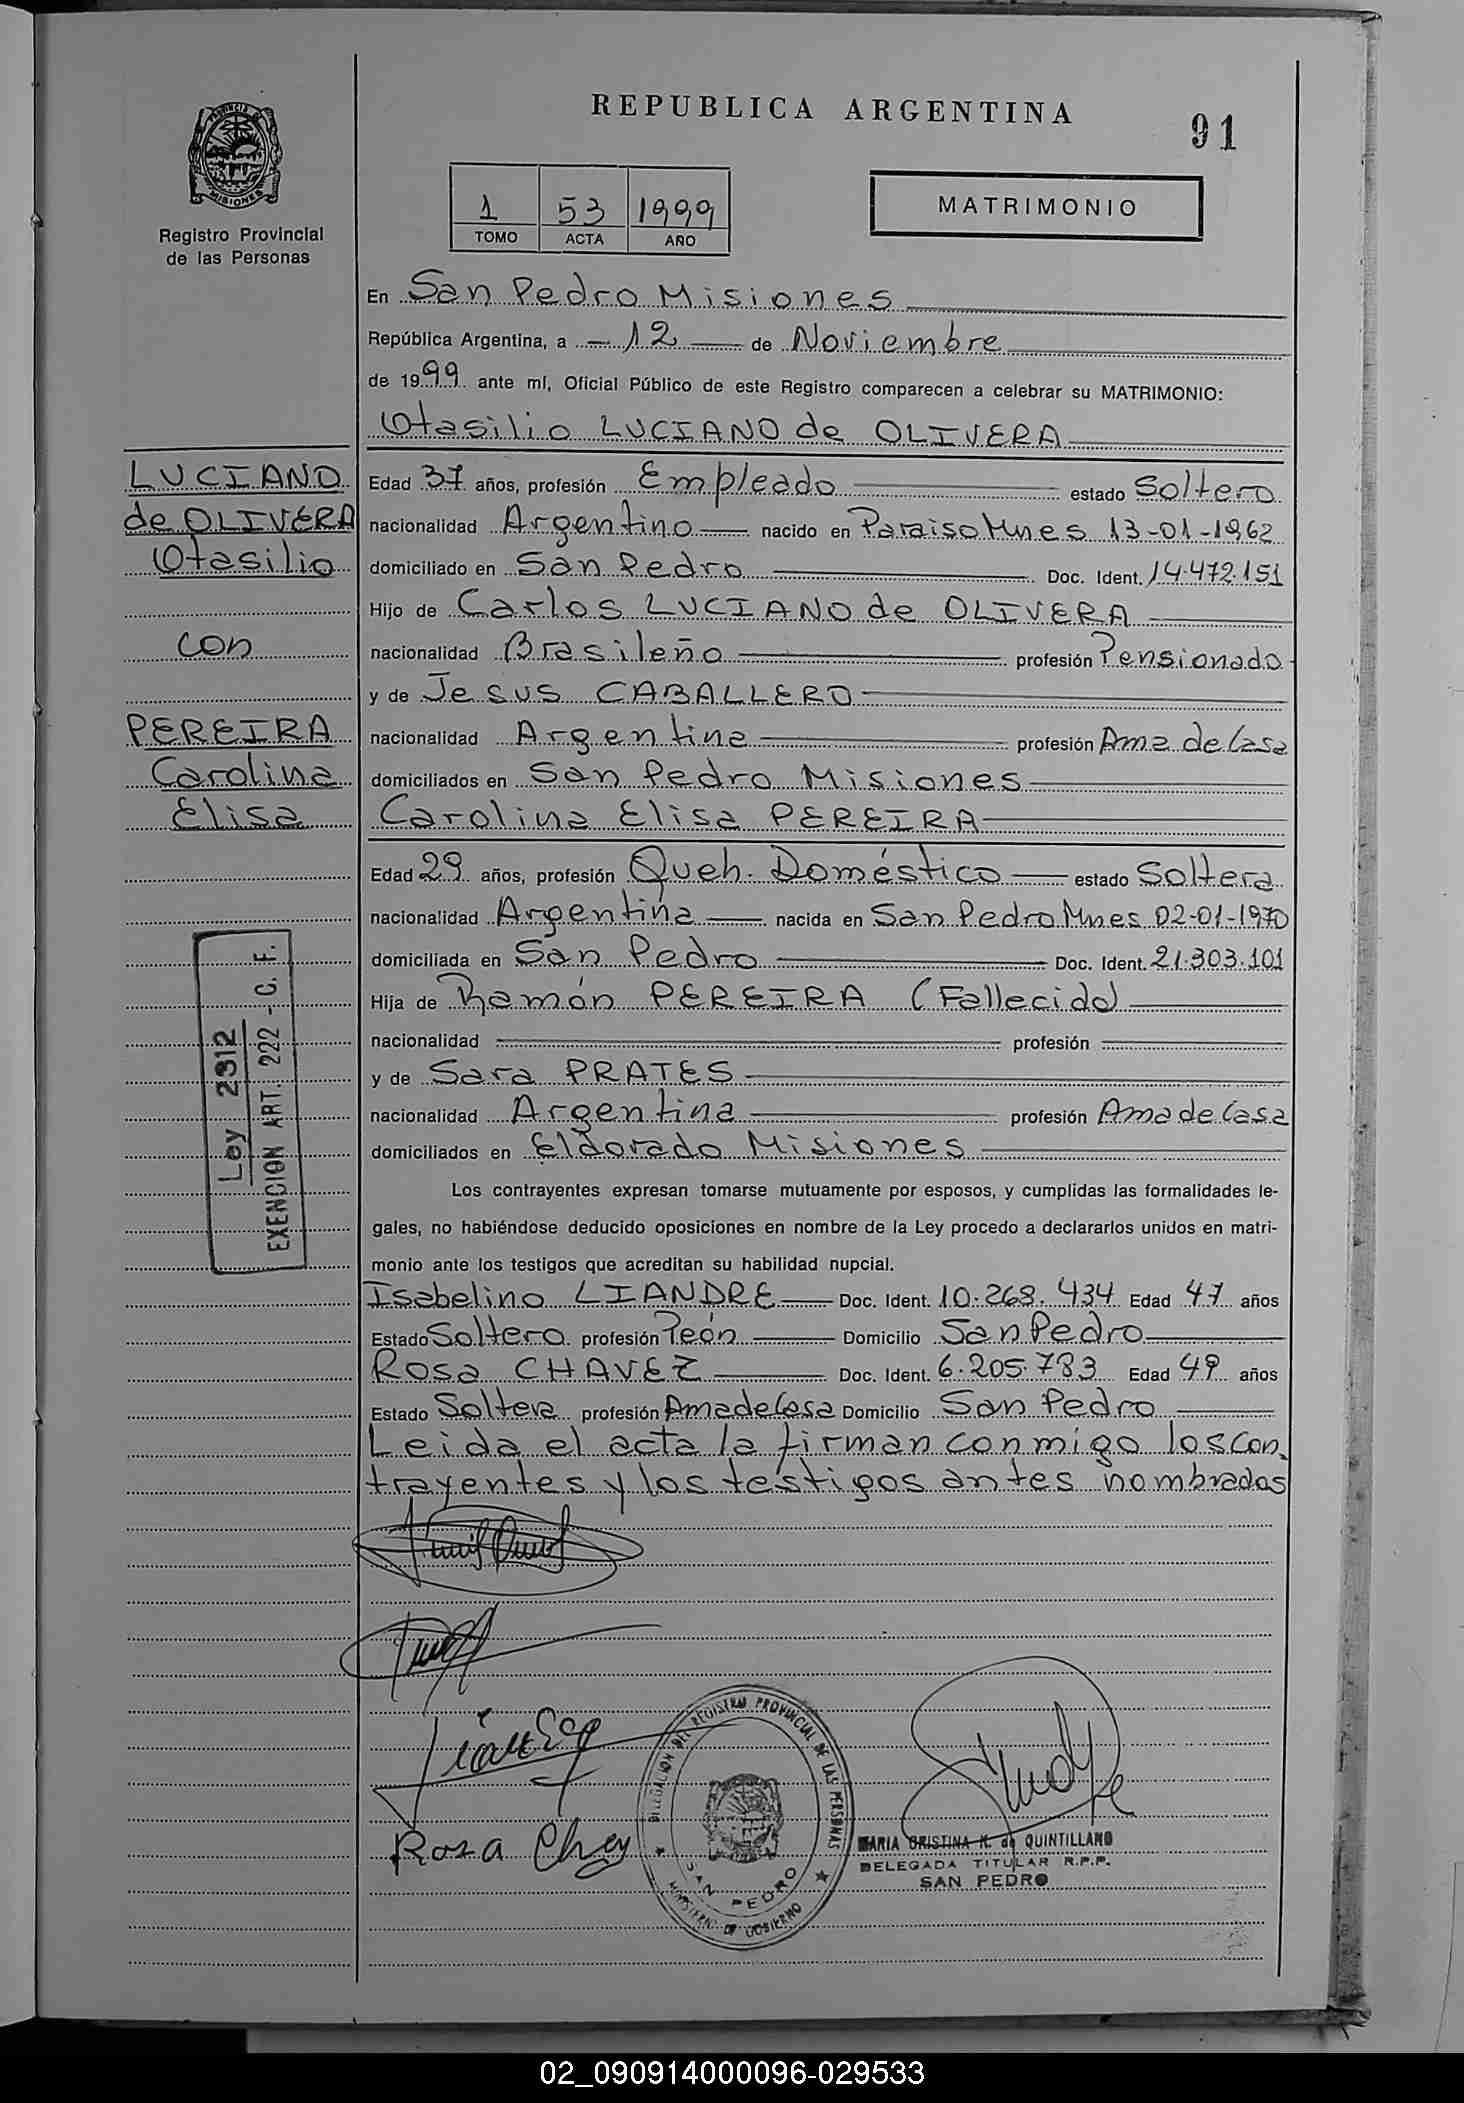 REPUBLICA ARGENTINA
91
PROVINCIA DE
MISIONES
Registro Provincial
de las Personas
1 53 1999
TOMO ACTA AÑO
MATRIMONIO
En San Pedro Misiones
República Argentina, a 12 de Noviembre
de 1999 ante mí, Oficial Público de este Registro comparecen a celebrar su MATRIMONIO:
Otasilio LUCIANO de OLIVERA
LUCIANO
de OLIVERA
Otasilio
con
PEREIRA
Carolina
Elisa
Edad 37 años, profesión Empleado estado Soltero
nacionalidad Argentino nacido en Paraiso Mnes 13-01-1962
domiciliado en San Pedro Doc. Ident. 14.472.151
Hijo de Carlos LUCIANO de OLIVERA
nacionalidad Brasileño profesión Pensionado
y de Jesus CABALLERO
nacionalidad Argentina profesión Ama de Casa
domiciliados en San Pedro Misiones
Carolina Elisa PEREIRA
Edad 29 años, profesión Queh. Doméstico estado Soltera
nacionalidad Argentina nacida en San Pedro Mnes 02-01-1970
domiciliada en San Pedro Doc. Ident. 21.303.101
Hija de Ramón PEREIRA (Fallecido)
nacionalidad profesión
y de Sara PRATES
nacionalidad Argentina profesión Ama de Casa
domiciliados en Eldorado Misiones
Ley 2312
EXENCION ART. 222 - C. F.
Los contrayentes expresan tomarse mutuamente por esposos, y cumplidas las formalidades le-
gales, no habiéndose deducido oposiciones en nombre de la Ley procedo a declararlos unidos en matri-
monio ante los testigos que acreditan su habilidad nupcial.
Isabelino LIANDRE Doc. Ident. 10.268.434 Edad 47 años
Estado Soltero profesión Peón Domicilio San Pedro
Rosa CHAVEZ Doc. Ident. 6.205.783 Edad 49 años
Estado Soltera profesión Ama de Casa Domicilio San Pedro
Leida el acta la firman conmigo los con
trayentes y los testigos antes nombrados
Rosa
DELEGACION DEL REGISTRO PROVINCIAL DE LAS PERSONAS
SAN PEDRO
MINISTERIO DE GOBIERNO
MARIA CRISTINA K. de QUINTILLANO
DELEGADA TITULAR R.P.P.
SAN PEDRO
02_090914000096-029533